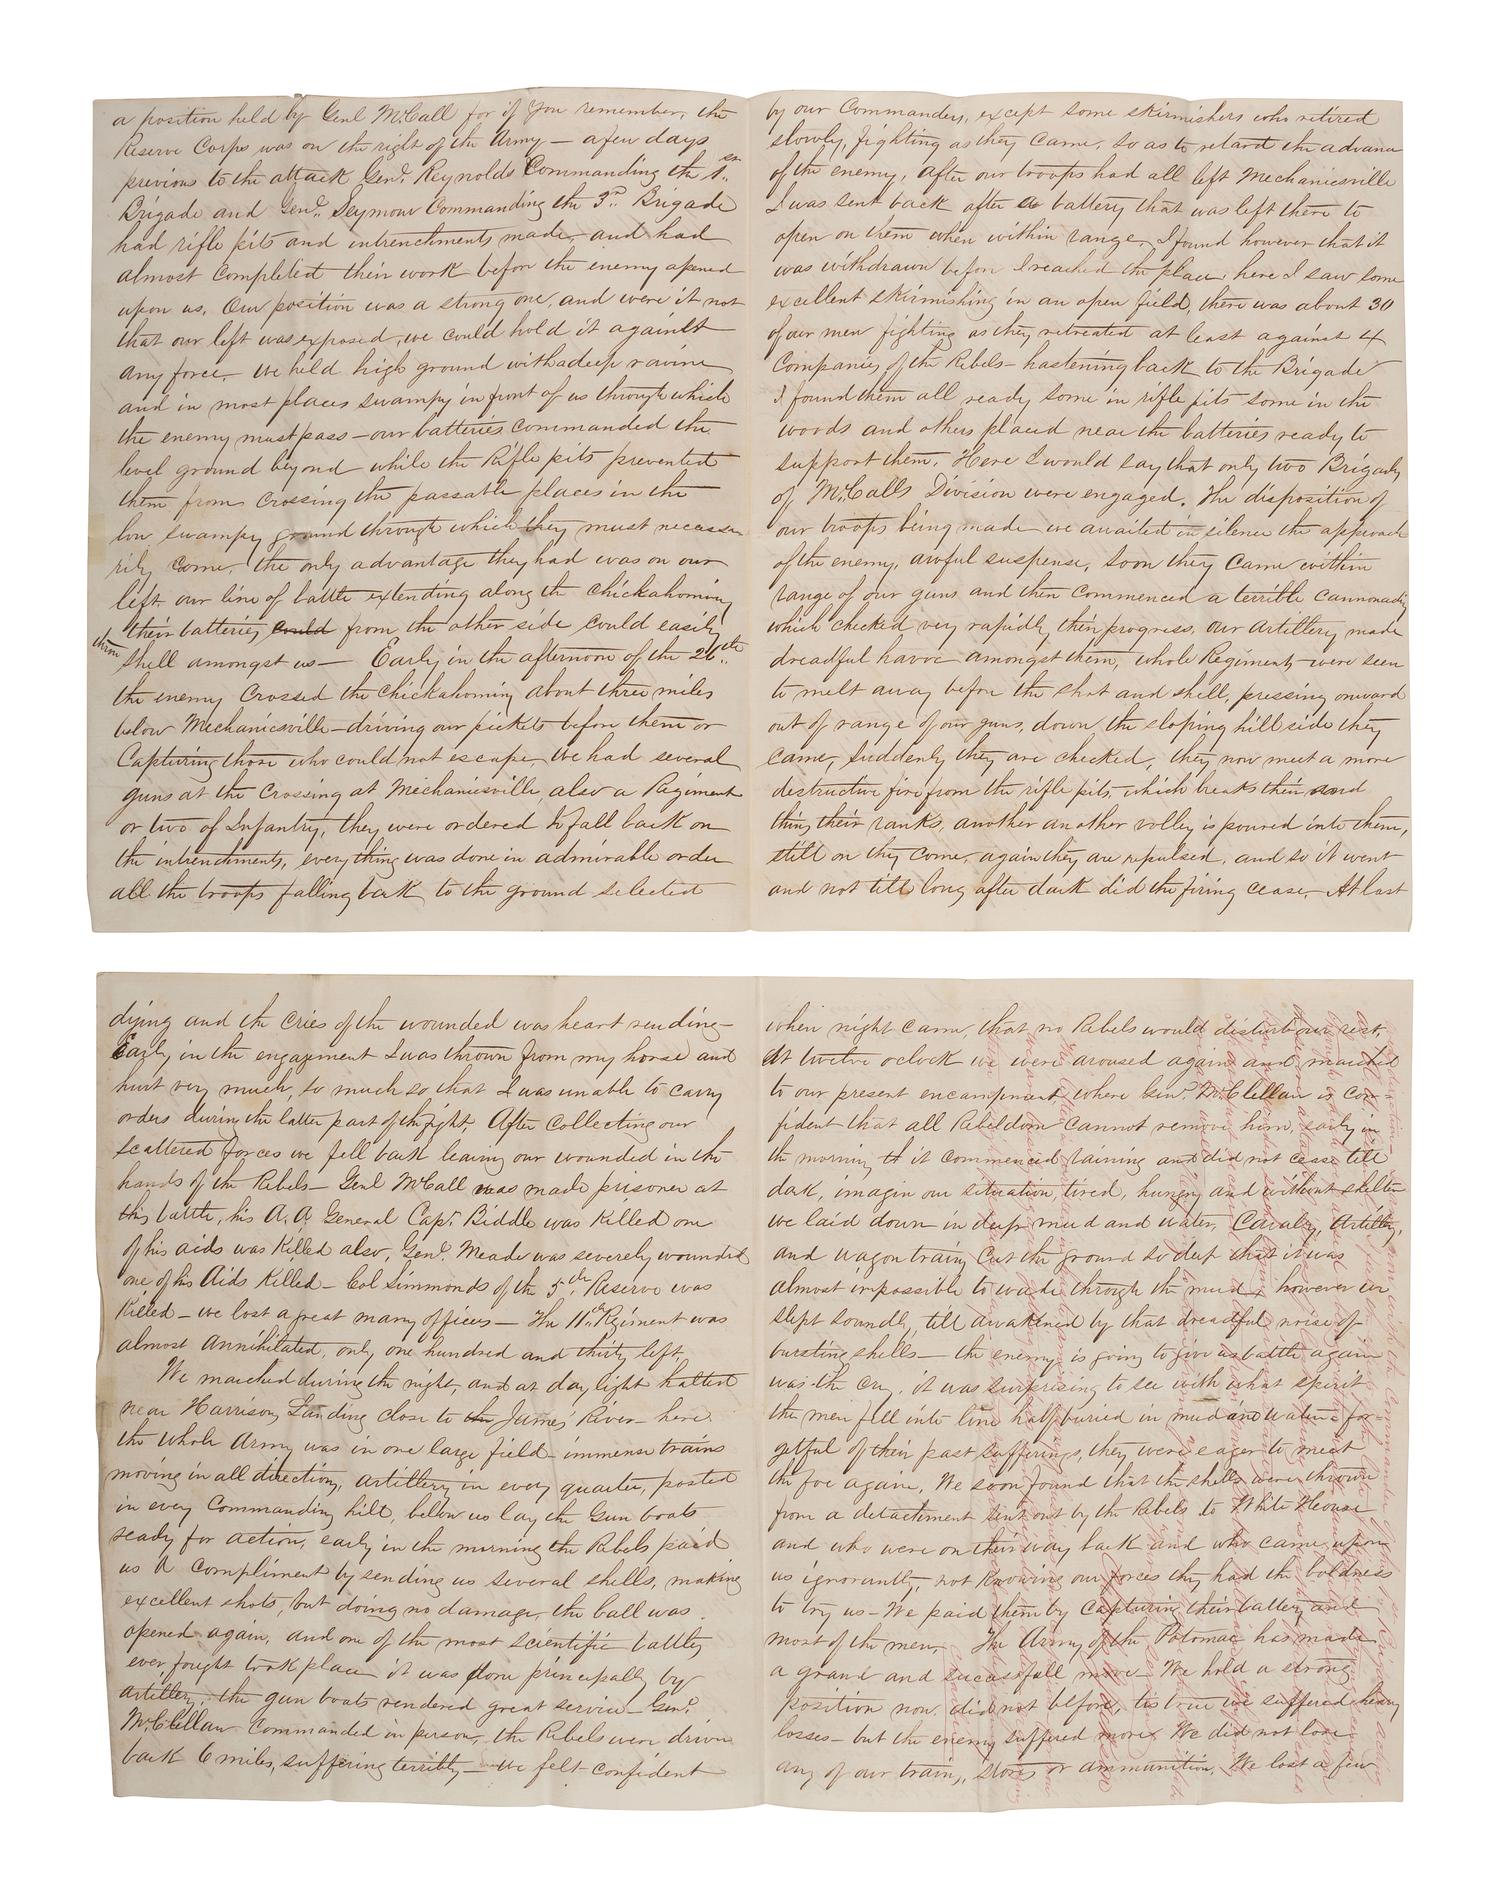 a position held by Genl McCall for if you remember, the
Reserve Corps was on the right of the Army — a few days
previous to the attack Genl. Reynolds Commanding the 1st
Brigade and Genl. Seymour Commanding the 3rd Brigade
had rifle pits and intrenchments made, and had
almost completed their work before the enemy opened
upon us. Our position was a strong one, and were it not
that our left was exposed, we could hold it against
any force. We held high ground with a deep ravine
and in most places swampy in front of us through which
the enemy must pass — our batteries commanded the
level ground beyond while the Rifle pits prevented
them from crossing the passable places in the
low swampy ground through which they must necessa
rily come. the only advantage they had was on our
left. our line of battle extending along the Chickahominy
their batteries could from the other side could easily
throw shell amongst us — Early in the afternoon of the 26th
the enemy Crossed the Chickahominy about three miles
below Mechanicsville — driving our pickets before them or
Capturing those who could not escape. We had several
guns at the Crossing at Mechanicsville, also a Regiment
or two of Infantry, they were ordered to fall back on
the intrenchments, everything was done in admirable order
all the troops falling back to the ground selected
by our Commanders, except some skirmishers who retired
slowly, fighting as they came, so as to retard the advance
of the enemy. After our troops had all left Mechanicsville
I was sent back after a battery that was left there to
open on them when within range, I found however that it
was withdrawn before I reached the place. here I saw some
excellent skirmishing in an open field, there was about 30
of our men fighting as they retreated at least against 4
Companies of the Rebels — hastening back to the Brigade
I found them all ready some in rifle pits some in the
woods and others placed near the batteries ready to
support them. Here I would say that only two Brigades
of McCalls Division were engaged. The disposition of
our troops being made we awaited in silence the approach
of the enemy, awful suspense, soon they came within
range of our guns and then commenced a terrible cannonading
which checked very rapidly their progress, our Artillery made
dreadful havoc amongst them, whole Regiments were seen
to melt away before the shot and shell, pressing onward
out of range of our guns, down the sloping hill side they
came, suddenly they are checked, they now meet a more
destructive fire from the rifle pits which breaks their and
thins their ranks, another another volley is poured into them,
still on they come, again they are repulsed, and so it went
and not till long after dark did the firing cease. At last
dying and the cries of the wounded was heart rending —
Early in the engagement I was thrown from my horse and
hurt very much, so much so that I was unable to carry
orders during the latter part of the fight. After Collecting our
scattered forces we fell back leaving our wounded in the
hands of the Rebels — Genl McCall was made prisoner at
this battle, his A. A. General Capt. Biddle was Killed one
of his aids was Killed also, Genl. Meade was severely wounded
one of his Aids Killed — Col Simmonds of the 5th Reserve was
Killed — we lost a great many officers — The 11th Regiment was
almost Annihilated, only one hundred and thirty left.
We marched during the night, and at day light halted
near Harrisons Landing close to the James River — here
the whole Army was in one large field — immense trains
moving in all direction, artillery in every quarter, posted
in every Commanding hill, below us lay the Gun boats
ready for action, early in the morning the Rebels paid
us a compliment by sending us several shells, making
excellent shots, but doing no damage, the ball was
opened again, and one of the most scientific battles
ever fought took place it was done principally by
artillery, the gun boats rendered great service — Genl.
McClellan Commanded in person, the Rebels were driven
back 6 miles, suffering terribly — we felt confident
when night came, that no Rebels would disturb our rest.
At twelve oclock we were aroused again and marched
to our present encampment, where Genl. McClellan is con
fident that all Rebeldom Cannot remove him, early in
the morning it commenced raining and did not cease till
dark, imagin our situation, tired, hungry and without shelter
we laid down in deep mud and water, Cavalry, Artillery,
and wagon trains Cut the ground so deep that it was
almost impossible to wade through the mud, however we
slept soundly, till awakened by that dreadful noise of
bursting shells — the enemy is going to give us battle again
was the cry, it was surprising to see with what spirit
the men fell into line half buried in mud and water for-
getful of their past sufferings, they were eager to meet
the foe again. We soon found that the shells were thrown
from a detachment sent out by the Rebels to White House
and who were on their way back and who came upon
us ignorantly, not Knowing our forces they had the boldness
to try us — We paid them by Capturing their battery and
most of the men. The Army of the Potomac has made
a grand and sucessfull move — We hold a strong
position now, did not before, tis true we suffered heavy
losses — but the enemy suffered more. We did not lose
any of our trains, stores or ammunition. We lost a few